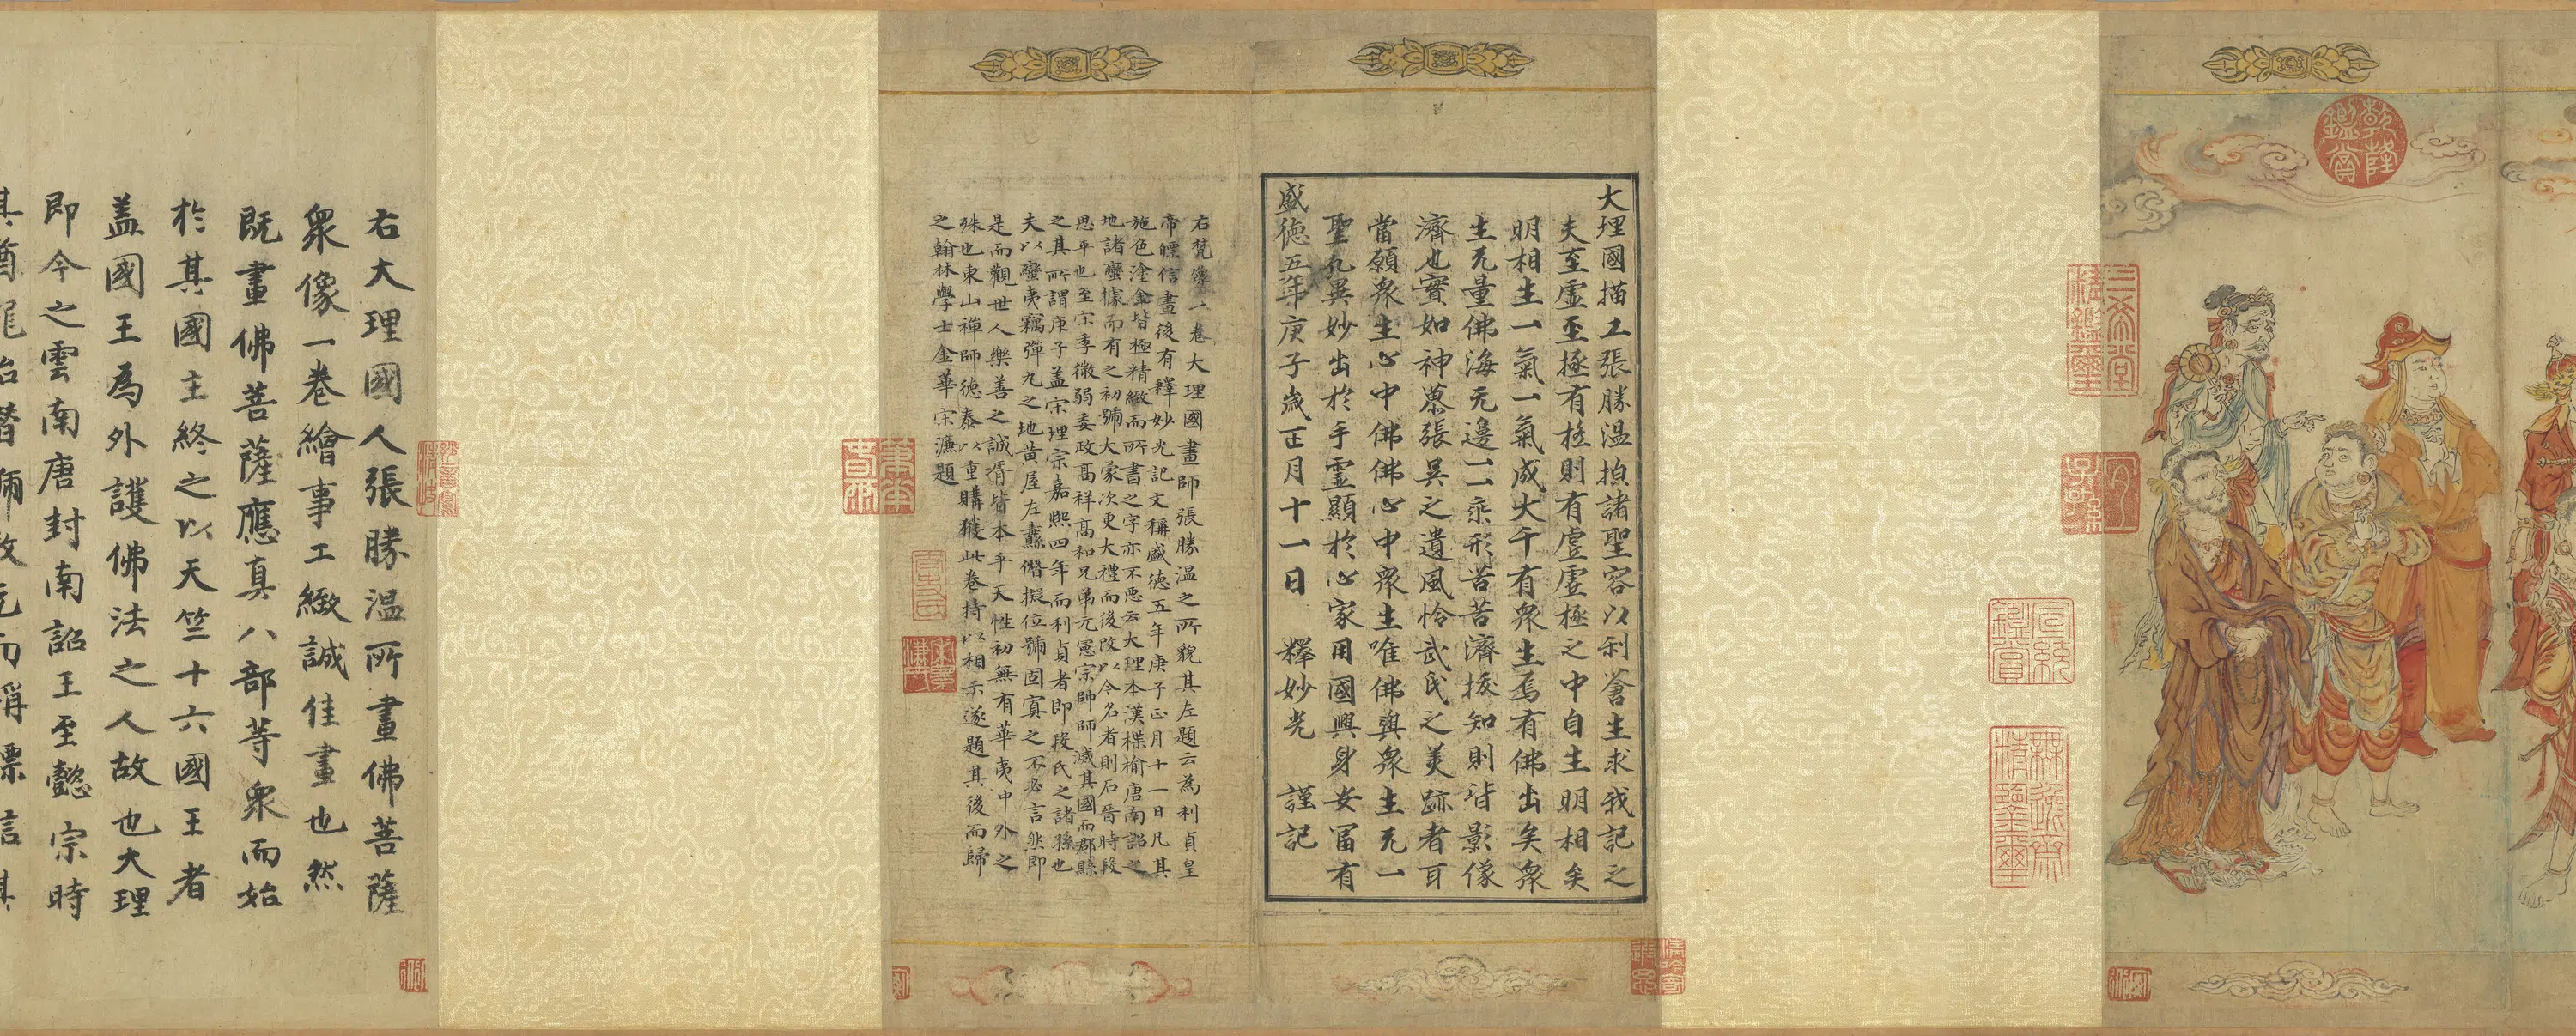 乾隆鑑賞
三希堂精鑑璽
宜子孫
宣統鑑賞
無逸齋精鑒璽
大理國描工張勝温描諸聖容以利蒼生求我記之
夫至虛至極有極則有虛虛極之中自生明相矣
明相生一氣一氣成大千有衆生焉有佛出矣衆
生无量佛海无邊一一乘形苦苦濟援知則皆影像
濟也寔如神慕張吳之遺風怜武氏之美跡者耳
當願衆生心中佛佛心中衆生唯佛與衆生无一
聖凡異妙出於手靈顯於心家用國興身安富有
盛德五年庚子歲正月十一日 釋妙光 謹記
右梵像一卷大理國畫師張勝温之所貌其左題云為利貞皇
帝㬽信畫後有釋妙光記文稱盛徳五年庚子正月十一日凡其
施色塗金皆極精緻而所書之字亦不惡云大理本漢楪榆唐南詔之
地諸蠻據而有之初號大蒙次更大禮而後改以今名者則石晉時段
思平也至宋季微弱委政高祥高和兄弟元憲宗帥師滅其國而郡縣
之其所謂庚子蓋宋理宗嘉熙四年而利貞者即段氏之諸孫也
夫以蠻夷竊彈丸之地黄屋左纛僭擬位號固寘之不必言然即
是而觀世人樂善之誠胥皆本乎天性初無有華夷中外之
殊也東山禪師徳泰以重購獲此卷持以相示遂題其後而歸
之翰林學士金華宋濂題
右大理國人張勝温所畫佛菩薩
衆像一卷繪事工緻誠佳畫也然
既畫佛菩薩應真八部等衆而始
於其國主終之以天竺十六國王者
蓋國王為外護佛法之人故也大理
即今之雲南唐封南詔王至懿宗時